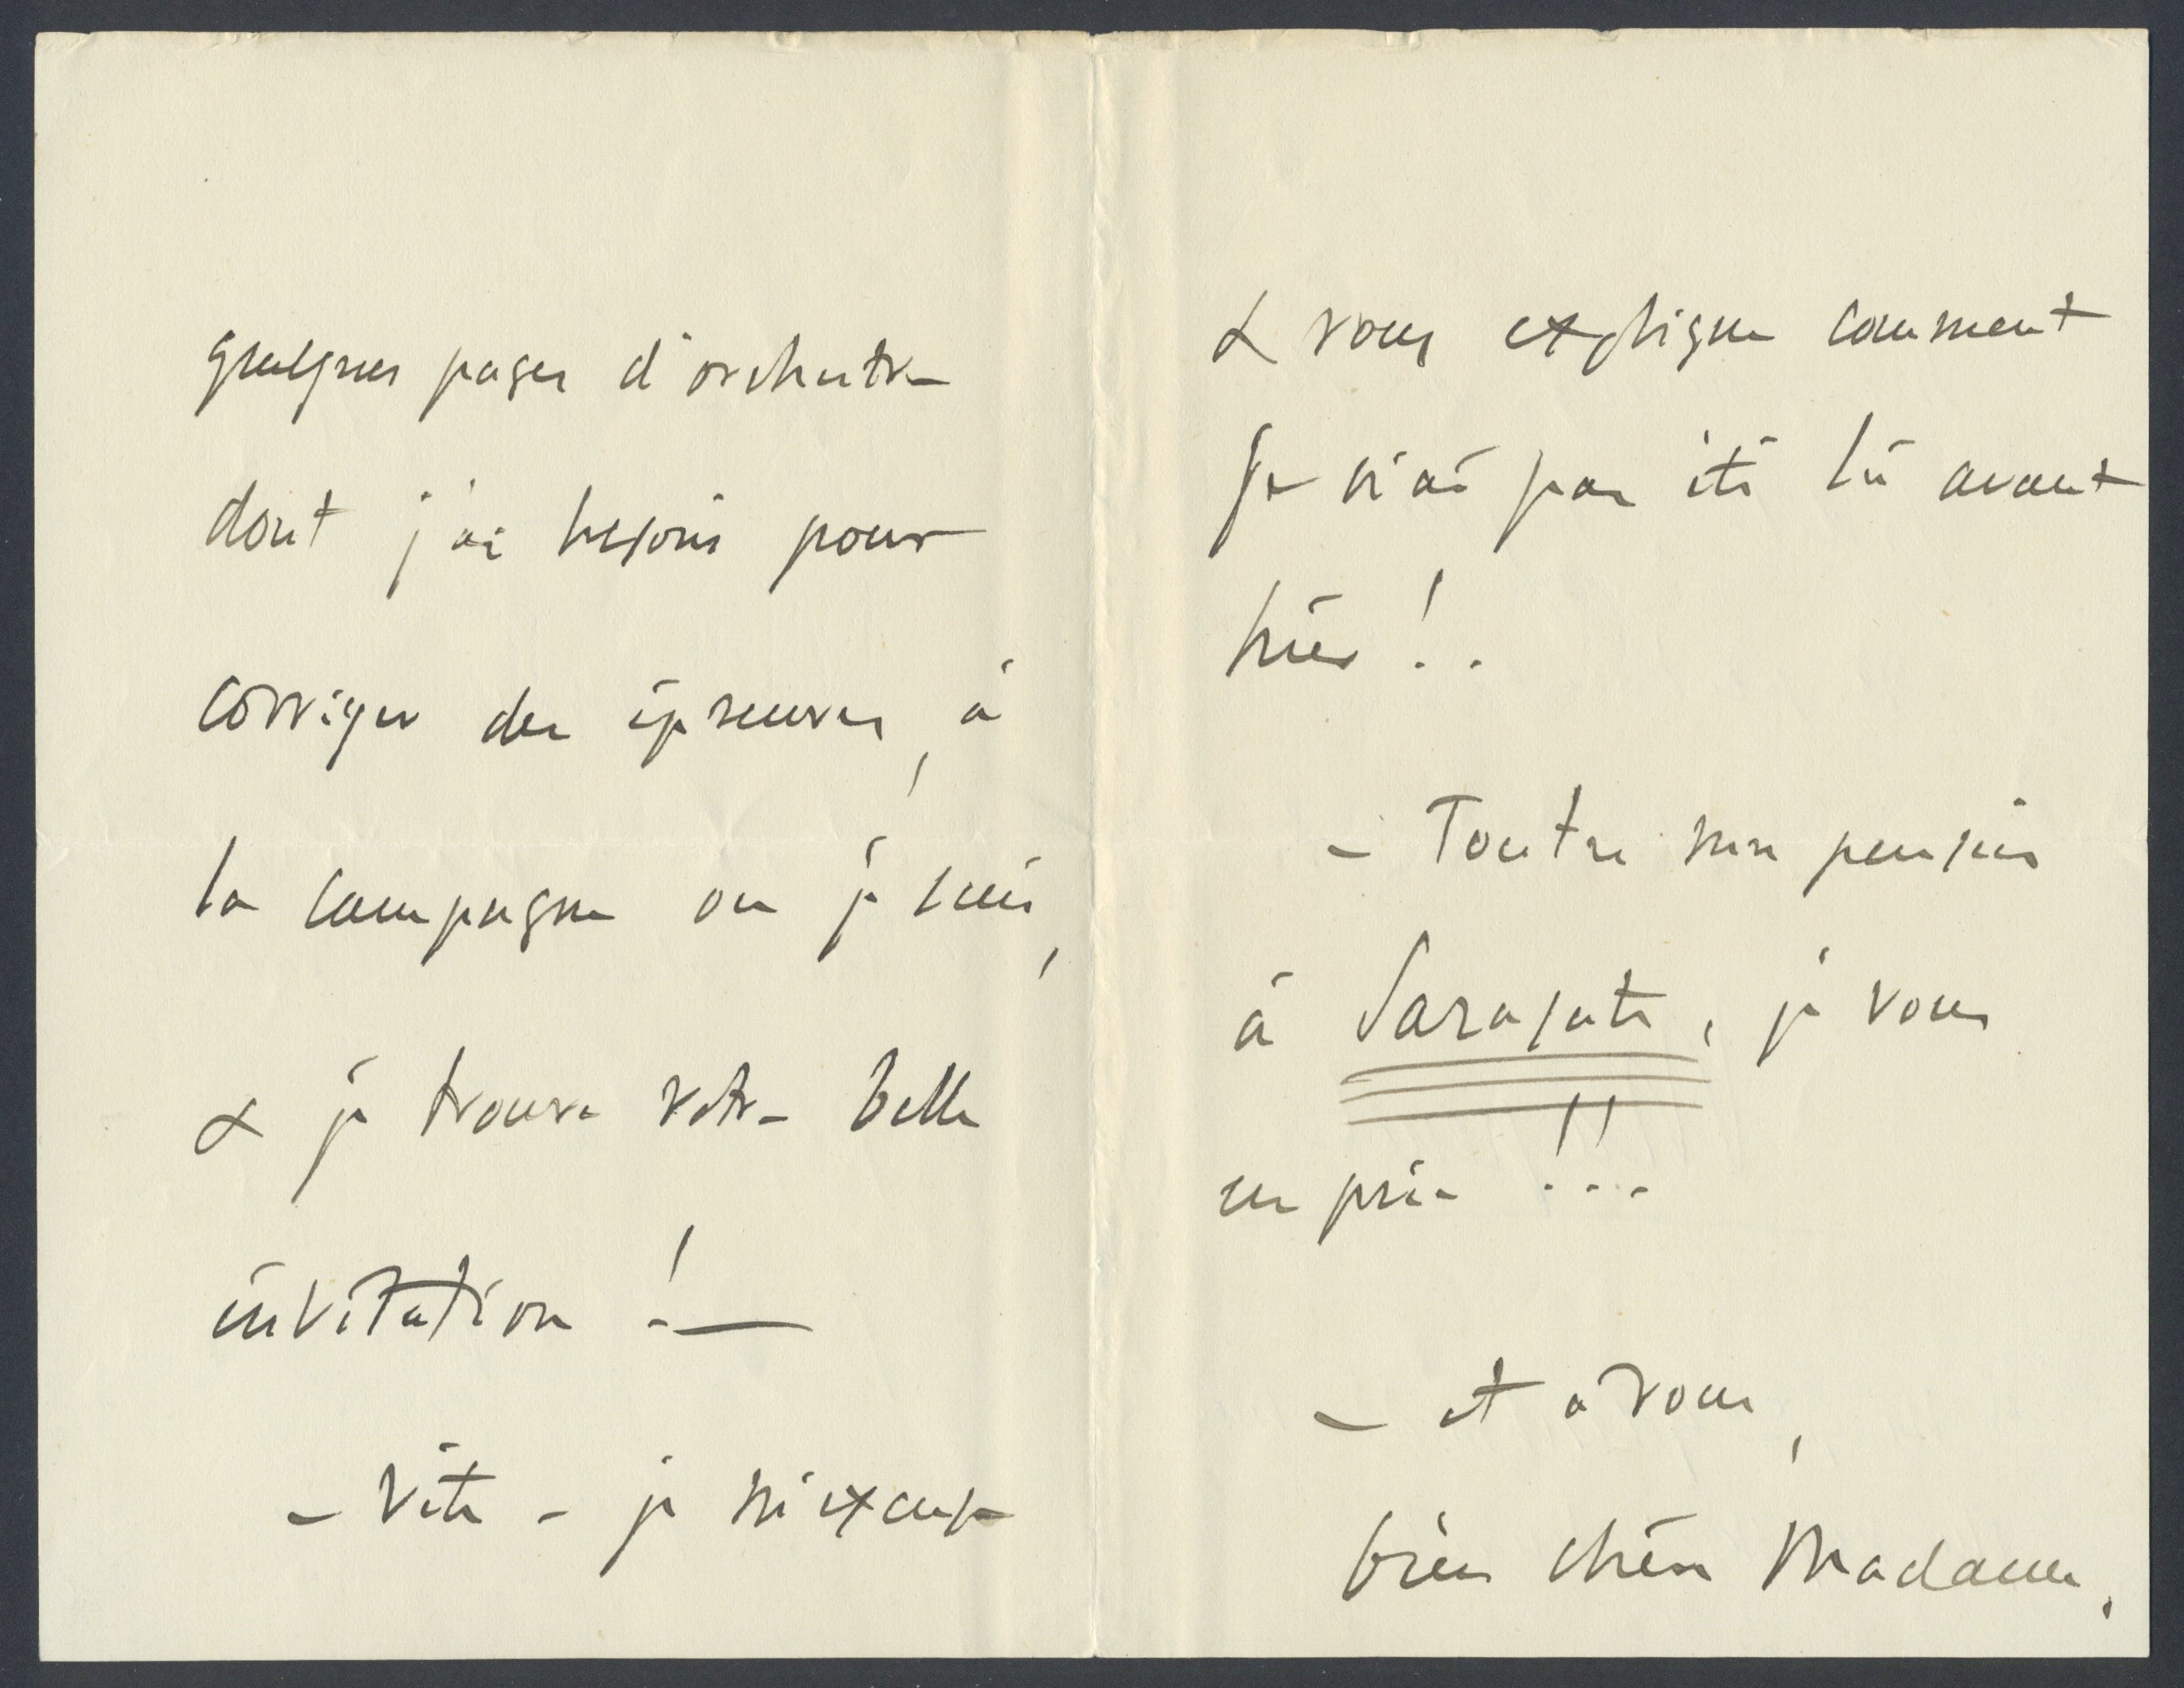 quelques pages d'orchestre
dont j'ai besoin pour
corriger des épreuves, à
la campagne où je suis,
& je trouve votre belle
invitation ! —
— Vite — je m'excuse
& vous explique comment
je n'ai pas été là avant
hier ! ..
— Toutes mes pensées
à Sarasate, je vous
en prie !! ...
— et à vous,
bien chère Madame,